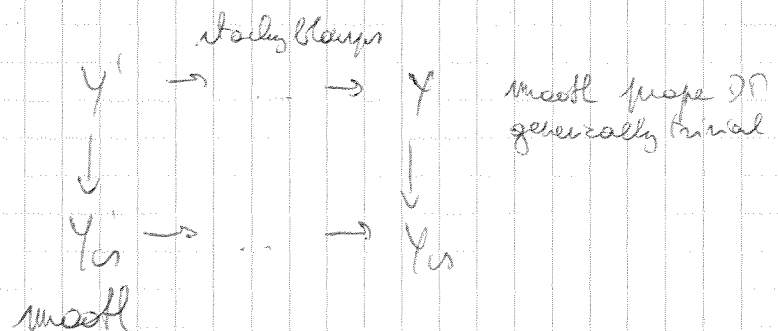 stacky blowups
Y' → ... → Y smooth proper DM
generically trivial
↓ ↓
Y'cs → ... → Ycs
smooth